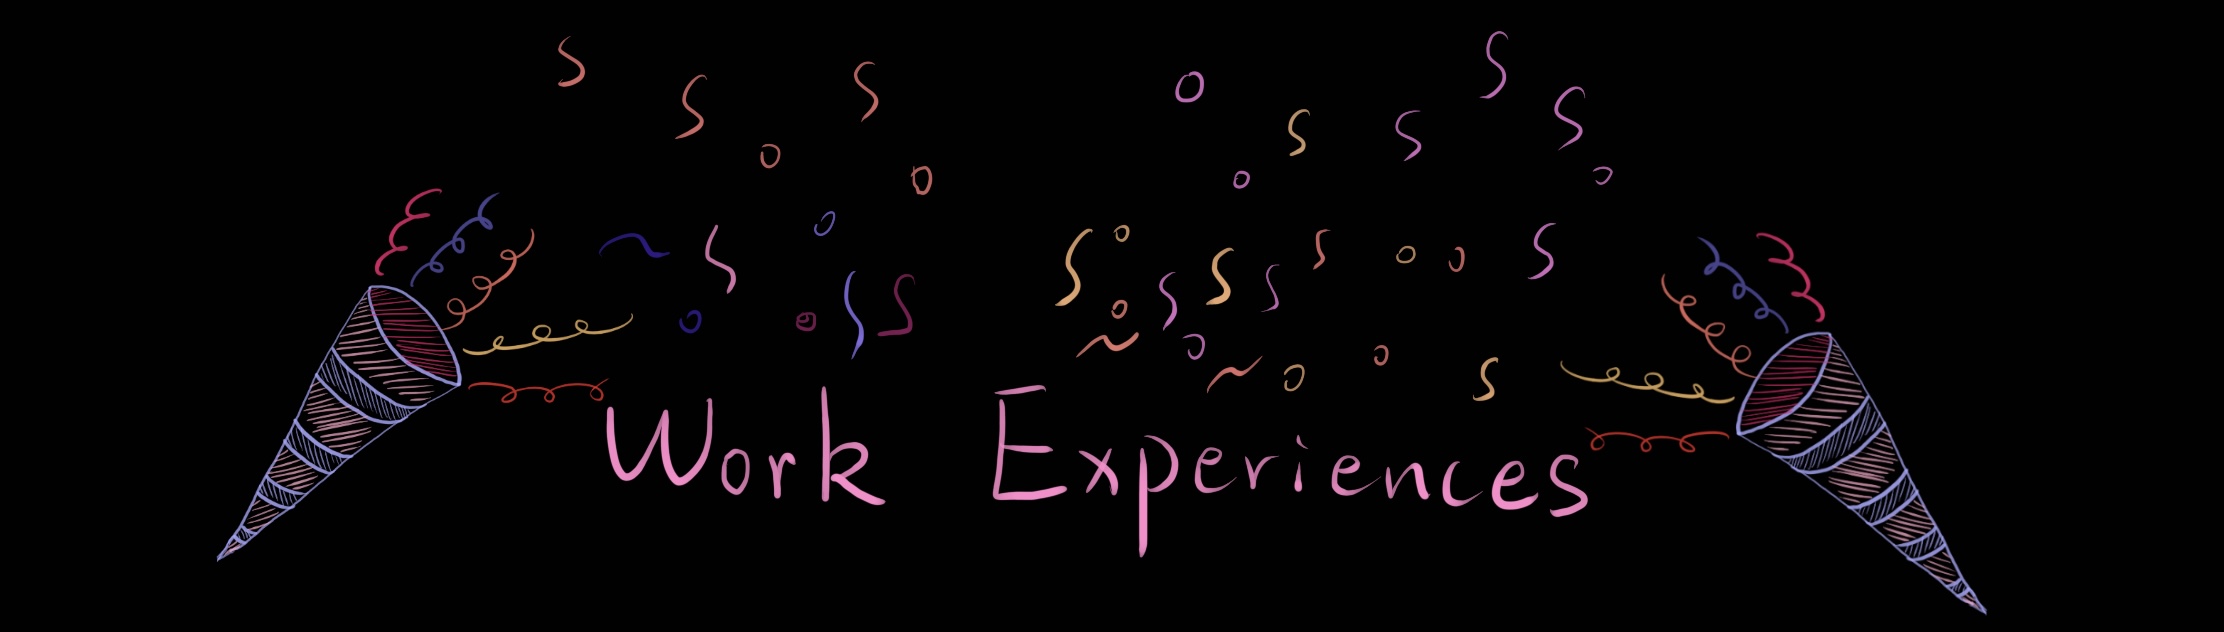 Work Experiences